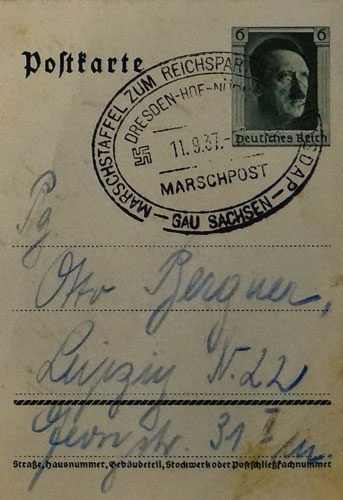 Postkarte
6 6
Deutsches Reich
MARSCHSTAFFEL ZUM REICHSPAR
DRESDEN-HOF-NÜR
11.9.37.-
MARSCHPOST
GAU SACHSEN
D.A.P.
Pg.
Otto Bergner,
Leipzig N. 22
31 I
Straße, Hausnummer, Gebäudeteil, Stockwerk oder Postschließfachnummer